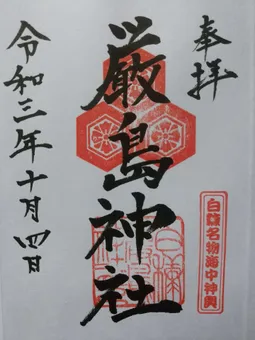 奉拝
白糠名物海中神輿
厳島神社
令和三年十月四日